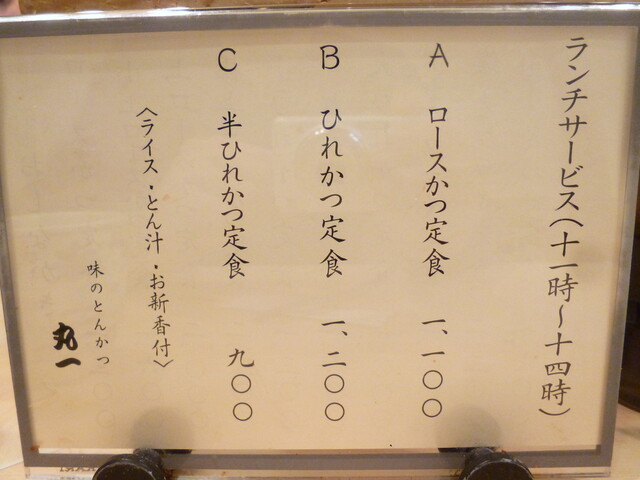 ランチサービス(十一時～十四時)
A ロースかつ定食 一、一〇〇
B ひれかつ定食 一、二〇〇
C 半ひれかつ定食 九〇〇
〈ライス・とん汁・お新香付〉
味のとんかつ
丸一